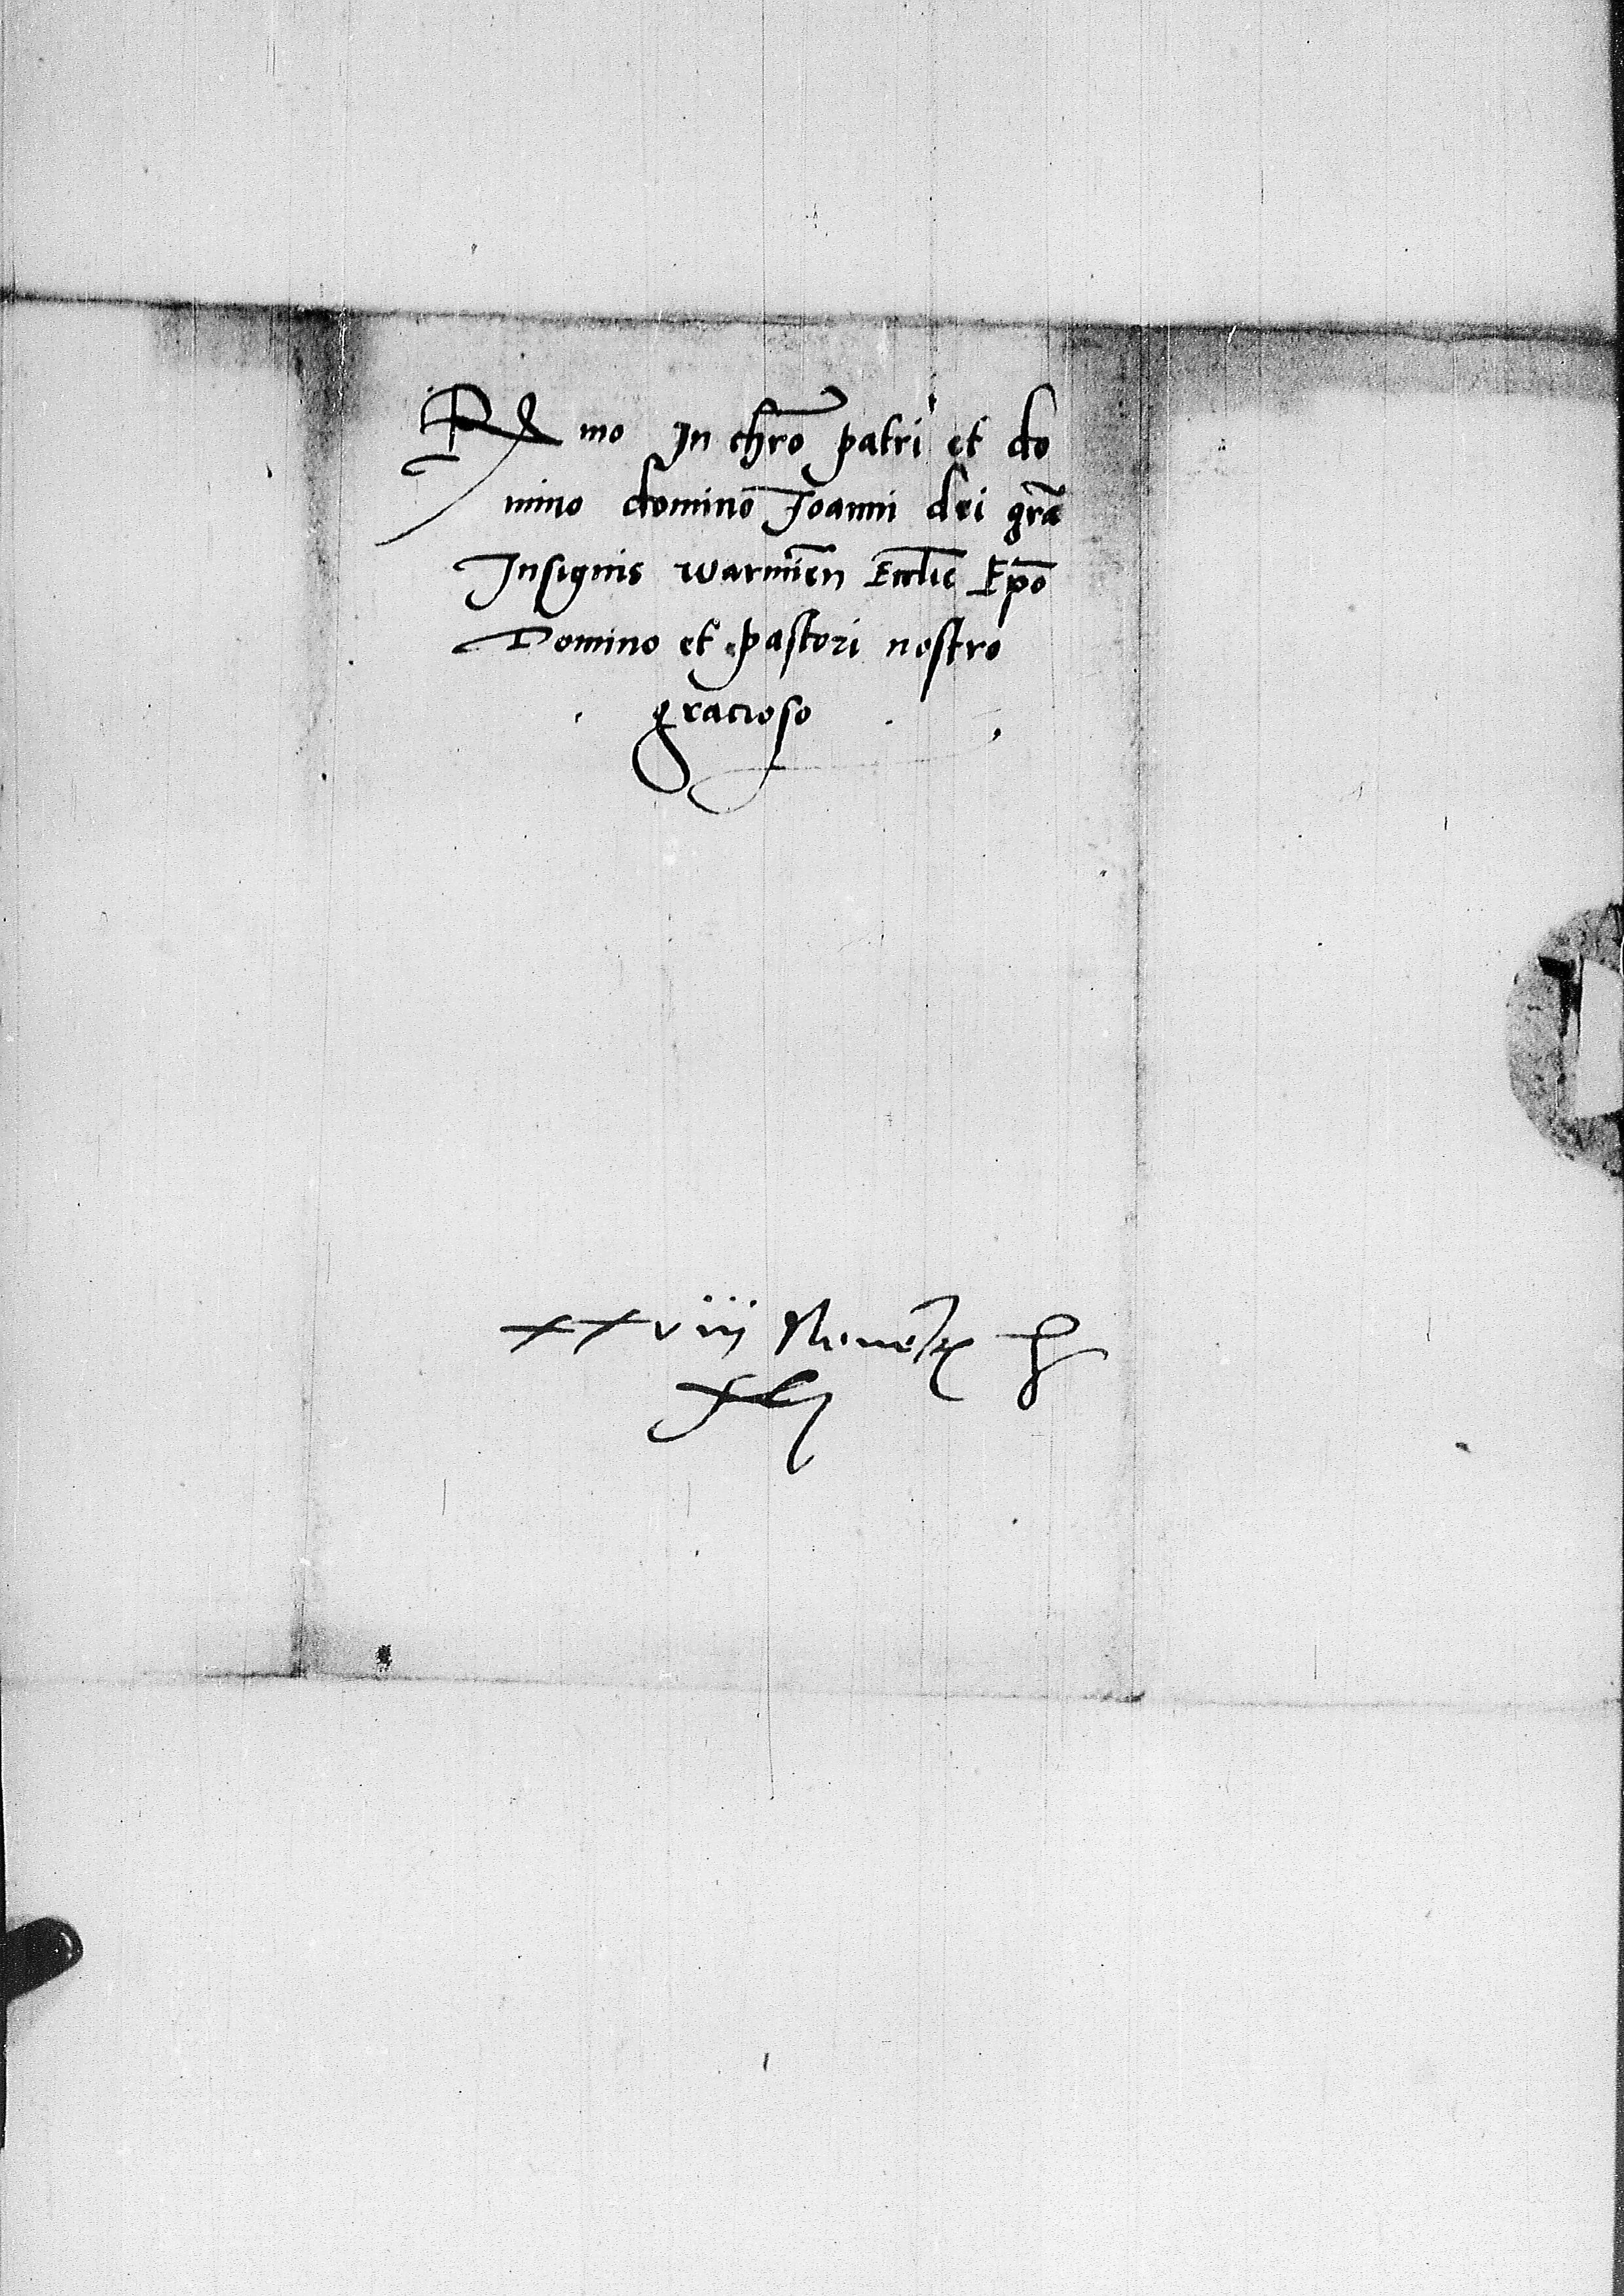 R mo In chro patri et do
mino domino Joanni dei gra
Insignis warmien Eccle Epo
Domino et pastori nostro
gracioso
xxviij Nove